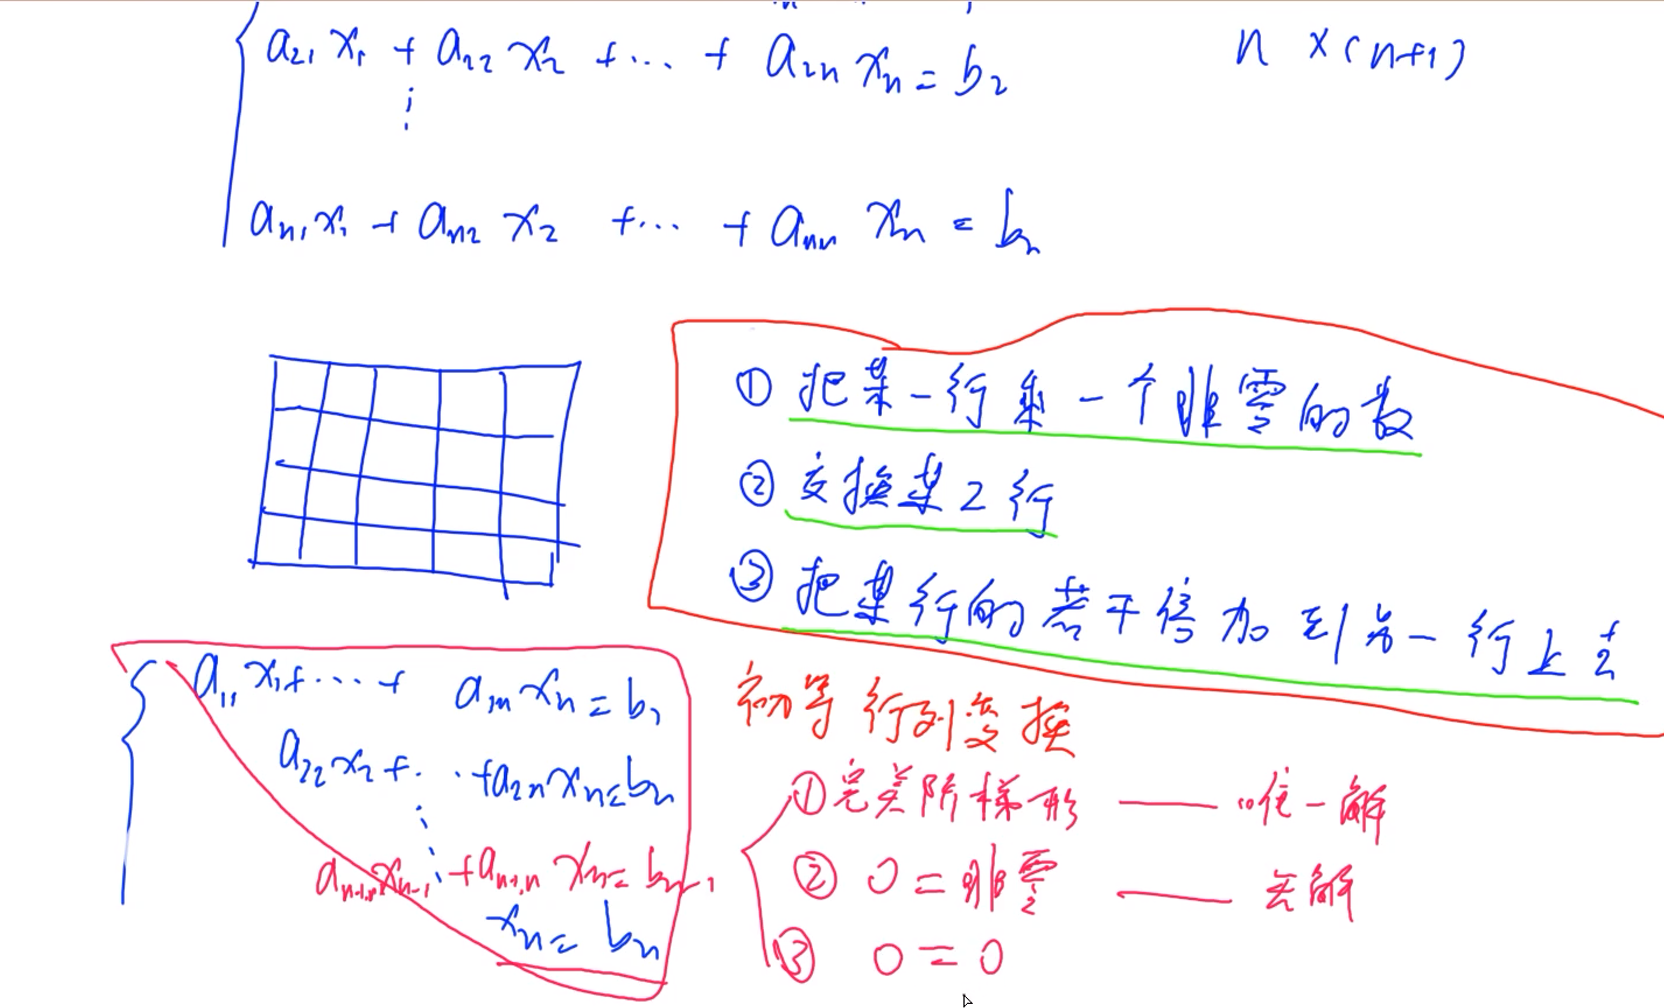 a₂₁ x₁ + a₂₂ x₂ + ... + a₂ₙ xₙ = b₂
n × (n+1)
⋮
aₙ₁ x₁ + aₙ₂ x₂ + ... + aₙₙ xₙ = bₙ
① 把某一行乘一个非零的数
② 交换某2行
③ 把某行的若干倍加到另一行上去
初等行列变换
a₁₁ x₁ + ... + a₁ₙ xₙ = b₁
a₂₂ x₂ + ... + a₂ₙ xₙ = b₂
⋮
aₙ₋₁,ₙ₋₁ xₙ₋₁ + aₙ₋₁,ₙ xₙ = bₙ₋₁
xₙ = bₙ
① 完美阶梯形 —— 唯一解
② 0 = 非零 —— 无解
③ 0 = 0